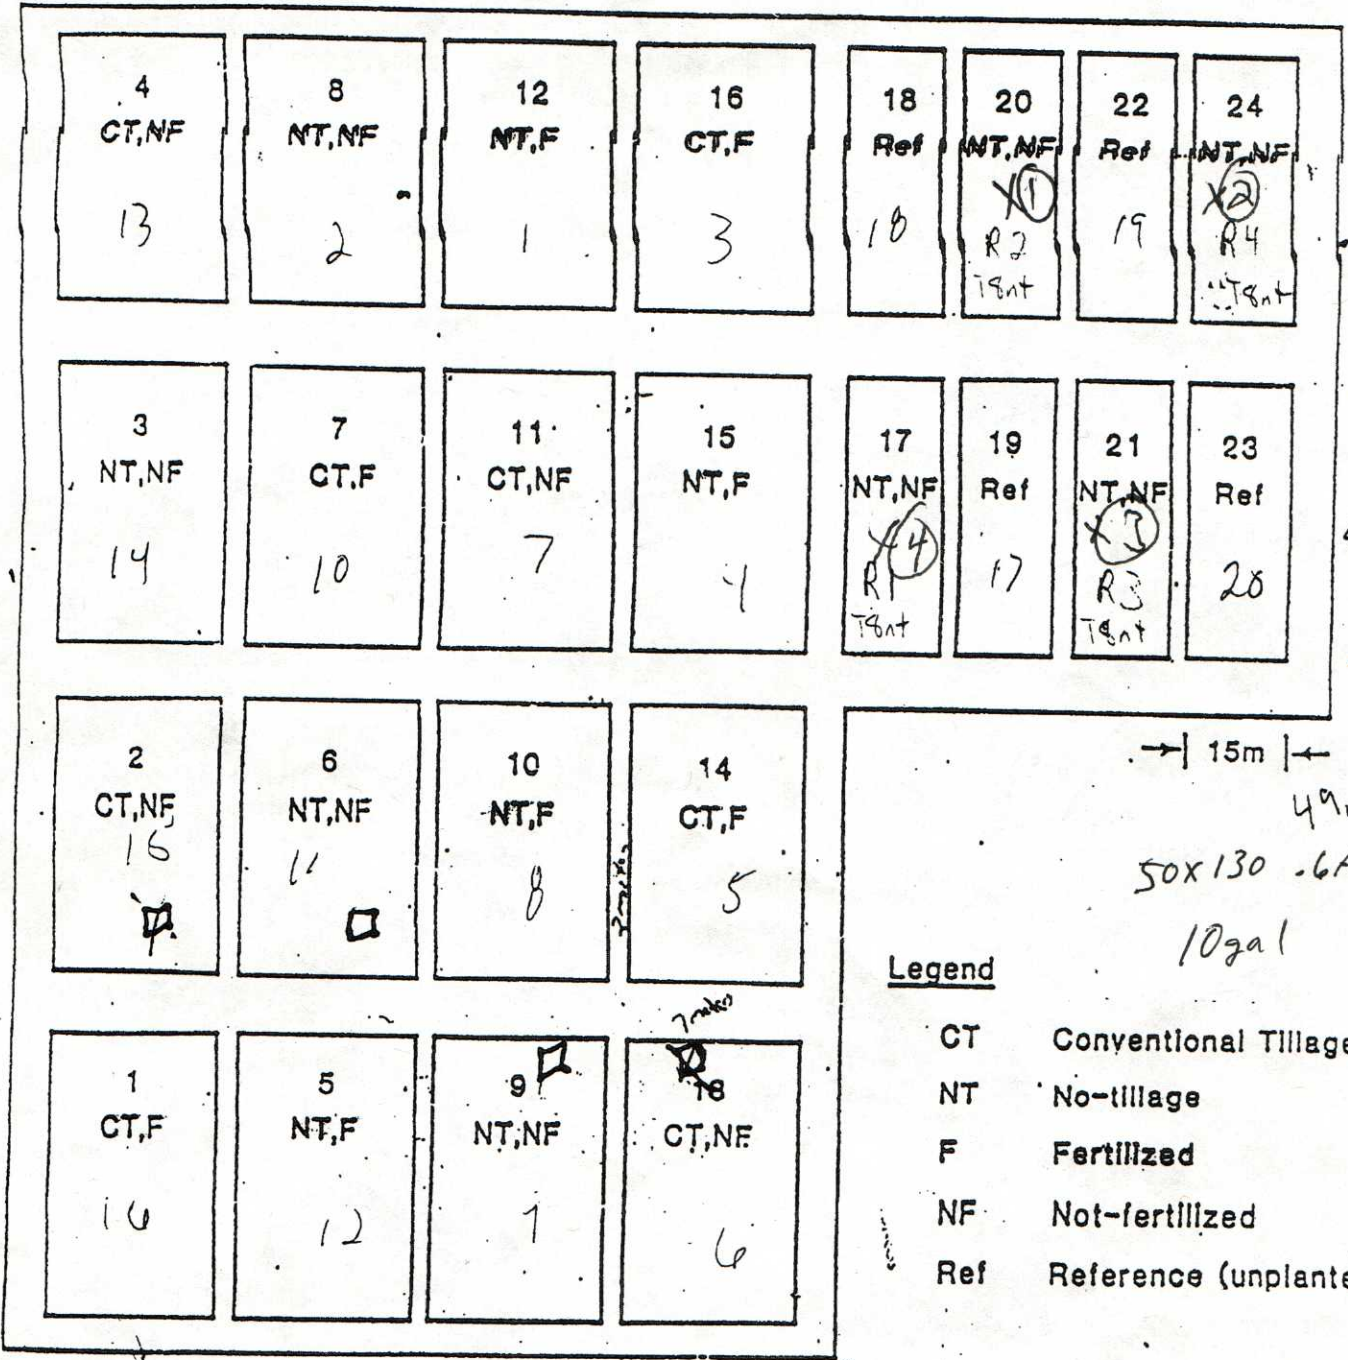 4
CT,NF
13
8
NT,NF
2
12
NT,F
1
16
CT,F
3
18
Ref
18
20
NT,NF
X 1
R2
T8nt
22
Ref
19
24
NT,NF
X 2
R4
T8nt
3
NT,NF
14
7
CT,F
10
11
CT,NF
7
15
NT,F
4
17
NT,NF
X 4
R1
T8nt
19
Ref
17
21
NT,NF
X 3
R3
T8nt
23
Ref
20
2
CT,NF
15
6
NT,NF
11
10
NT,F
8
14
CT,F
5
15m
50x130 .6A
10gal
1
CT,F
16
5
NT,F
12
9
NT,NF
CT,NF
6
Legend
CT Conventional Tillage
NT No-tillage
F Fertilized
NF Not-fertilized
Ref Reference (unplante